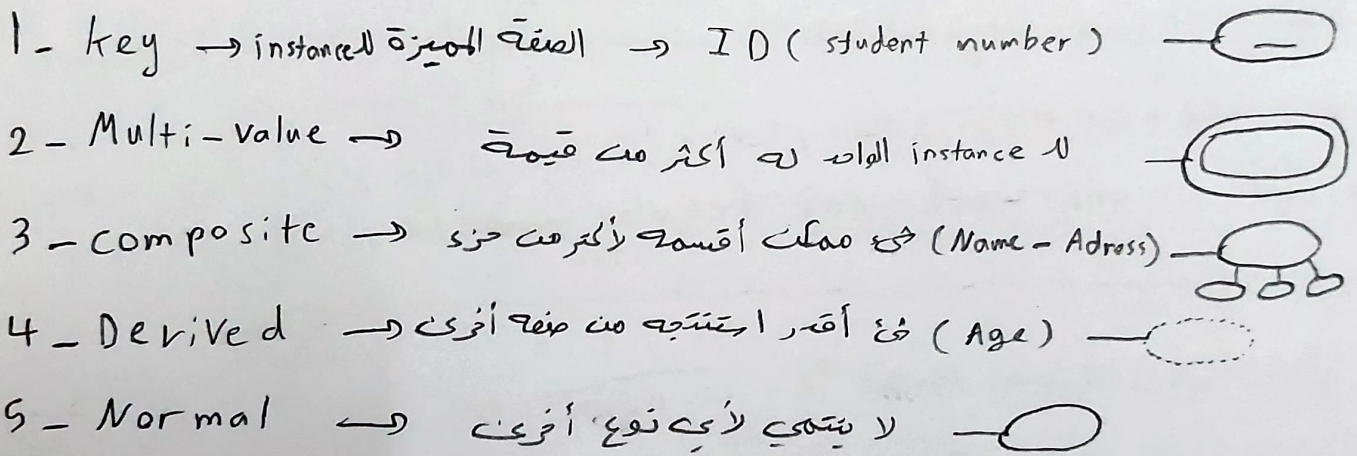 1- key → الصفة المميزة لل instance → ID ( student number )
2 - Multi-value → لل instance الواحد له أكثر من قيمة
3 - composite → شئ ممكن أقسمه لأكتر من جزء (Name - Adress)
4 - Derived → شئ أقدر استنتجه من صفه أخرى ( Age )
5 - Normal → لا ينتمي لأي نوع أخرى